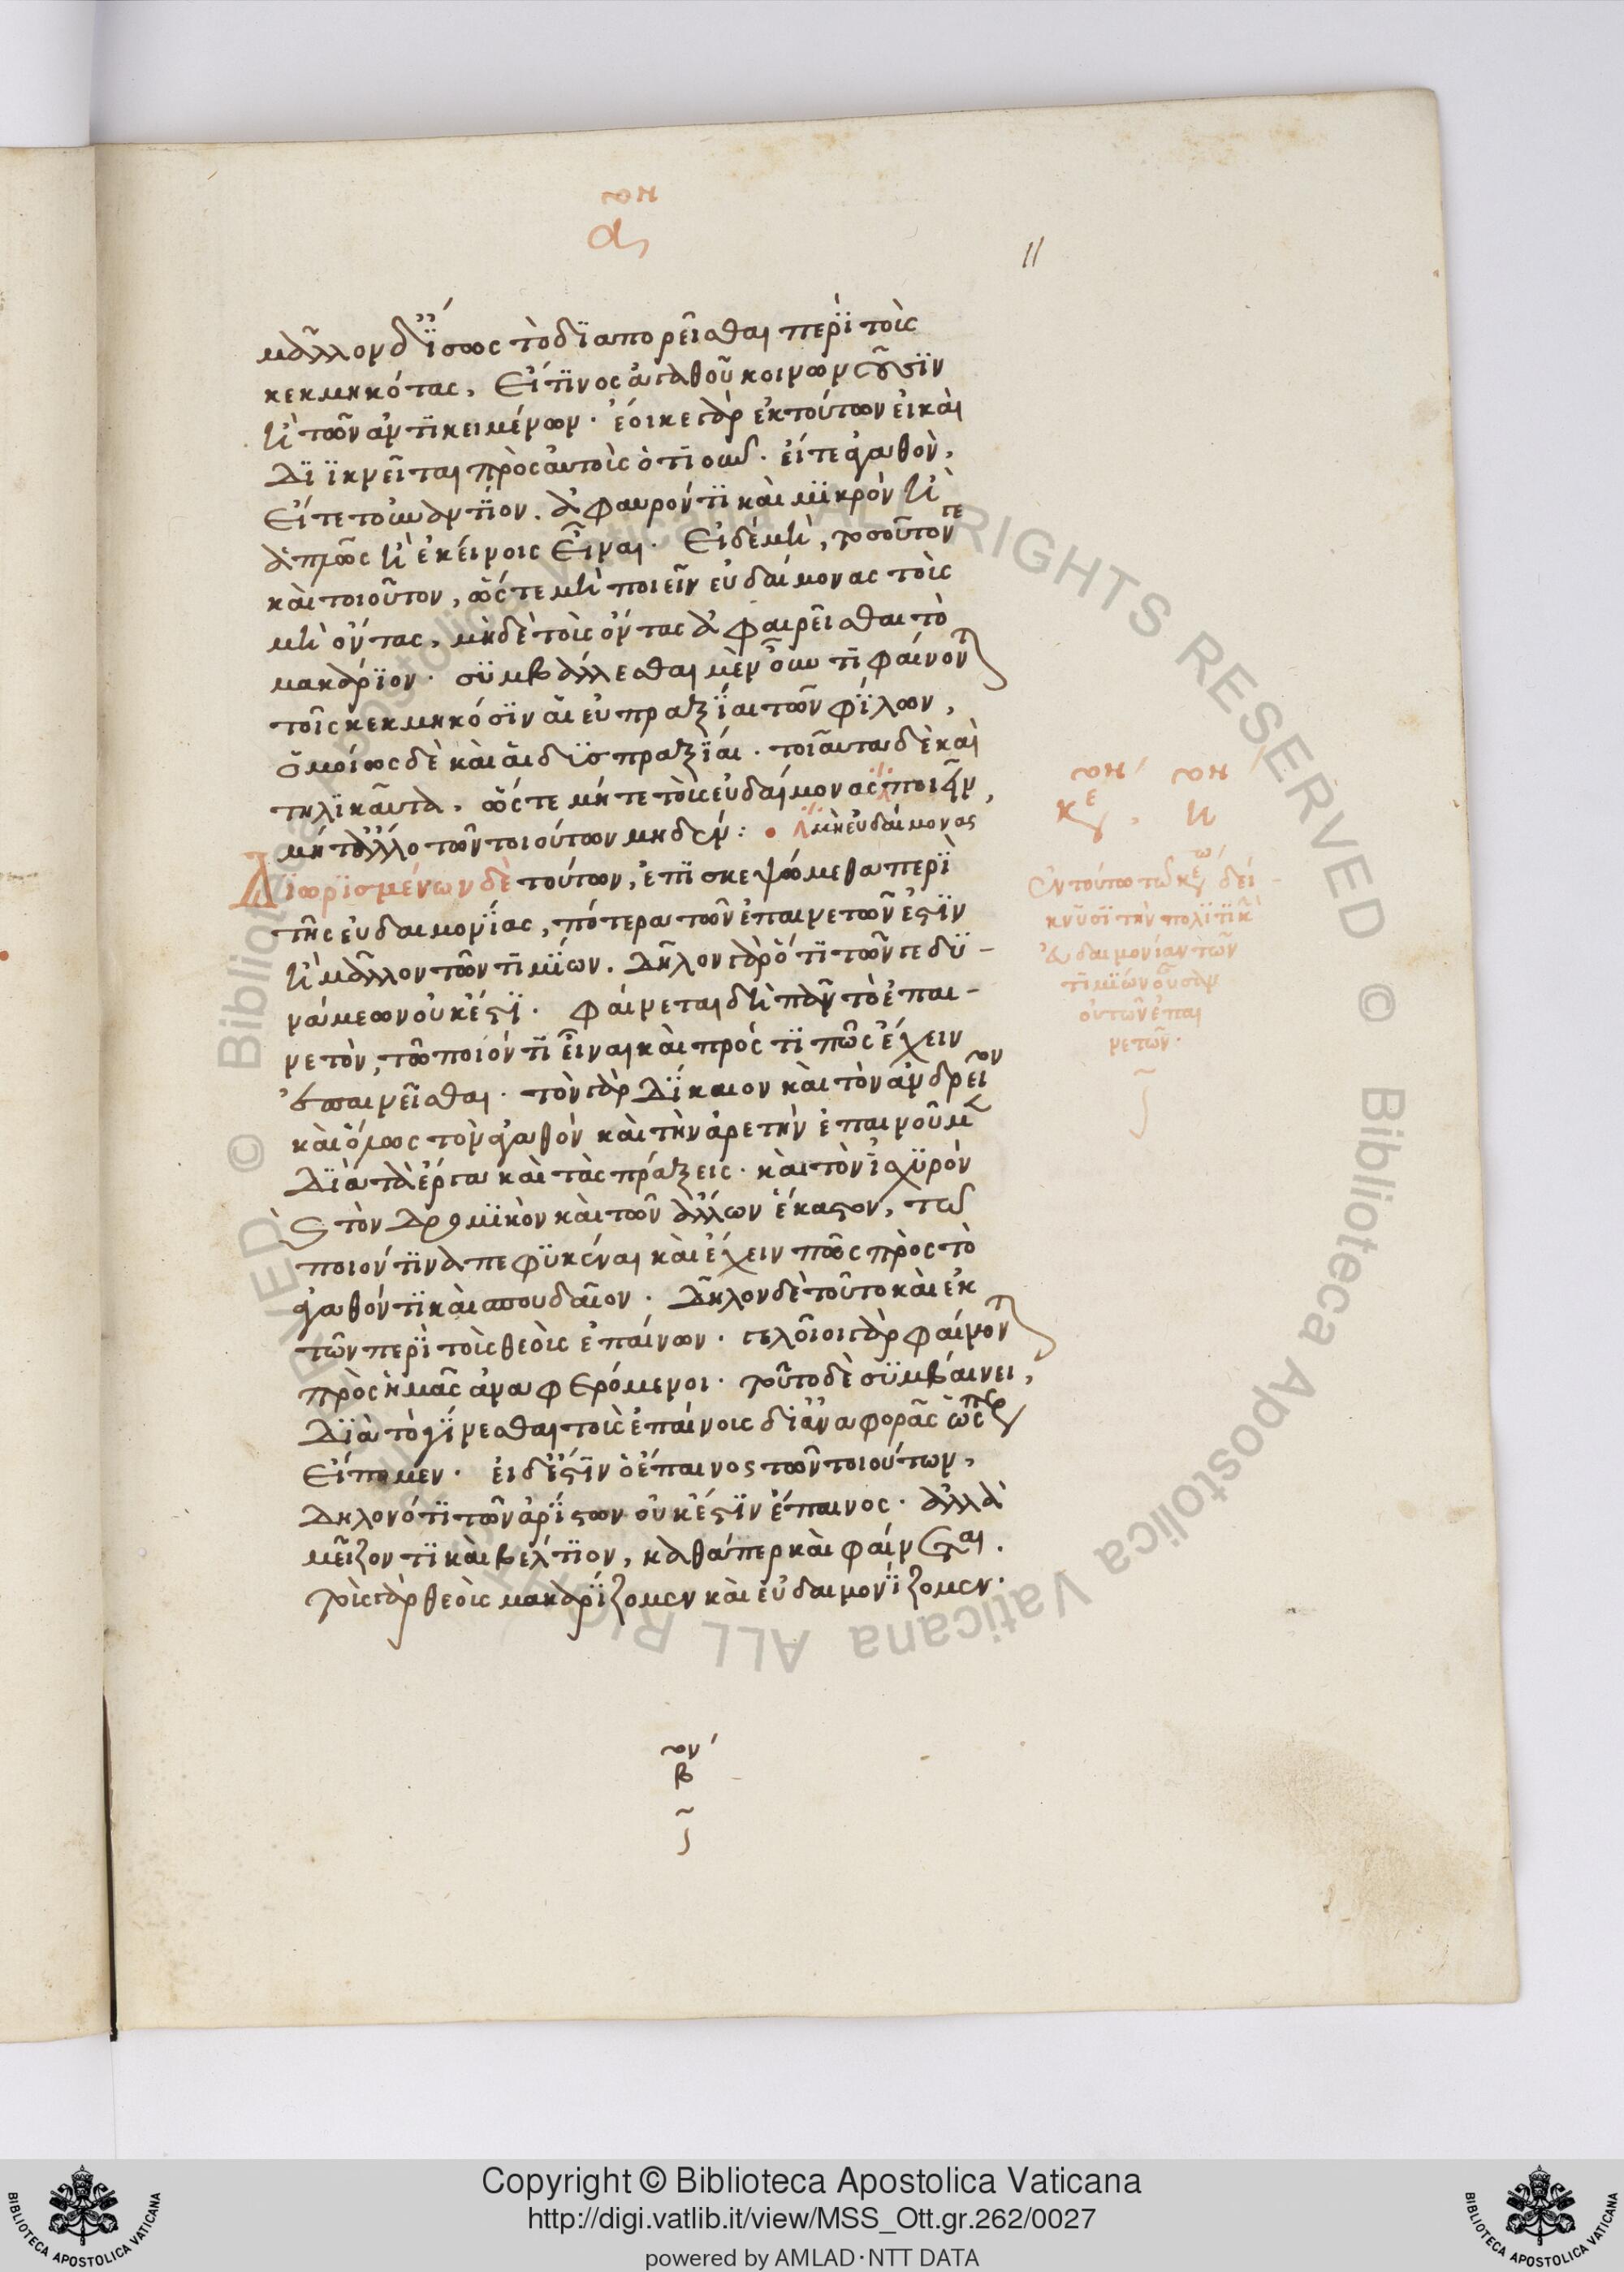 ον
α
11
μᾶλλον δ' ἴσως τὸ διαπορεῖσθαι περὶ τοὺς
κεκμηκότας, εἴ τινος ἀγαθοῦ κοινωνοῦσιν
ἢ τῶν ἀντικειμένων· ἔοικε γὰρ ἐκ τούτων εἰ καὶ
διϊκνεῖται πρὸς αὐτοὺς ὁτιοῦν· εἴτε ἀγαθὸν,
εἴτε τοὐναντίον. ἀφαυρόν τι καὶ μικρὸν ἢ
ἁπλῶς ἢ ἐκείνοις εἶναι· εἰ δὲ μὴ, τοσοῦτόν τε
καὶ τοιοῦτον, ὥστε μὴ ποιεῖν εὐδαίμονας τοὺς
μὴ ὄντας, μηδὲ τοὺς ὄντας ἀφαιρεῖσθαι τὸ
μακάριον· συμβάλλεσθαι μὲν οὖν τι φαίνονται
τοῖς κεκμηκόσιν αἱ εὐπραξίαι τῶν φίλων,
ὁμοίως δὲ καὶ αἱ δυσπραξίαι· τοιαῦτα δὲ καὶ
τηλικαῦτα, ὥστε μήτε τοὺς εὐδαίμονας ποιεῖν,
μήτ' ἄλλο τῶν τοιούτων μηδέν: μὴ εὐδαίμονας
Διωρισμένων δὲ τούτων, ἐπισκεψώμεθα περὶ
τῆς εὐδαιμονίας, πότερα τῶν ἐπαινετῶν ἐστὶν
ἢ μᾶλλον τῶν τιμίων. δῆλον γὰρ ὅτι τῶν γε δυ-
νάμεων οὐκ ἔστι· φαίνεται δὴ πᾶν τὸ ἐπαι-
νετὸν, τῷ ποιόν τι εἶναι καὶ πρός τι πῶς ἔχειν
ἐπαινεῖσθαι· τὸν γὰρ δίκαιον καὶ τὸν ἀνδρεῖον
καὶ ὅλως τὸν ἀγαθὸν καὶ τὴν ἀρετὴν ἐπαινοῦμεν
διὰ τὰ ἔργα καὶ τὰς πράξεις· καὶ τὸν ἰσχυρὸν
καὶ τὸν δρομικὸν καὶ τῶν ἄλλων ἕκαστον, τῷ
ποιόν τινα πεφυκέναι καὶ ἔχειν πῶς πρὸς τὸ
ἀγαθόν τι καὶ σπουδαῖον· δῆλον δὲ τοῦτο καὶ ἐκ
τῶν περὶ τοὺς θεοὺς ἐπαίνων· γελοῖοι γὰρ φαίνονται
πρὸς ἡμᾶς ἀναφερόμενοι· τοῦτο δὲ συμβαίνει,
διὰ τὸ γίνεσθαι τοὺς ἐπαίνους δι' ἀναφορᾶς ὥσπερ
εἴπομεν· εἰ δ' ἐστὶν ὁ ἔπαινος τῶν τοιούτων,
δῆλον ὅτι τῶν ἀρίστων οὐκ ἔστιν ἔπαινος· ἀλλὰ
μεῖζόν τι καὶ βέλτιον, καθάπερ καὶ φαίνεται.
τοὺς γὰρ θεοὺς μακαρίζομεν καὶ εὐδαιμονίζομεν·
ἐν τούτῳ τῷ κεφ δεί-
κνυσι τὴν πολιτικὴν
εὐδαιμονίαν τῶν
τιμίων οὖσαν
οὐ τῶν ἐπαι
νετῶν·
ον
β
Copyright © Biblioteca Apostolica Vaticana
http://digi.vatlib.it/view/MSS_Ott.gr.262/0027
powered by AMLAD·NTT DATA
BIBLIOTECA APOSTOLICA VATICANA
BIBLIOTECA APOSTOLICA VATICANA
© Biblioteca Apostolica Vaticana ALL RIGHTS RESERVED © Biblioteca Apostolica Vaticana ALL RIGHTS RESERVED